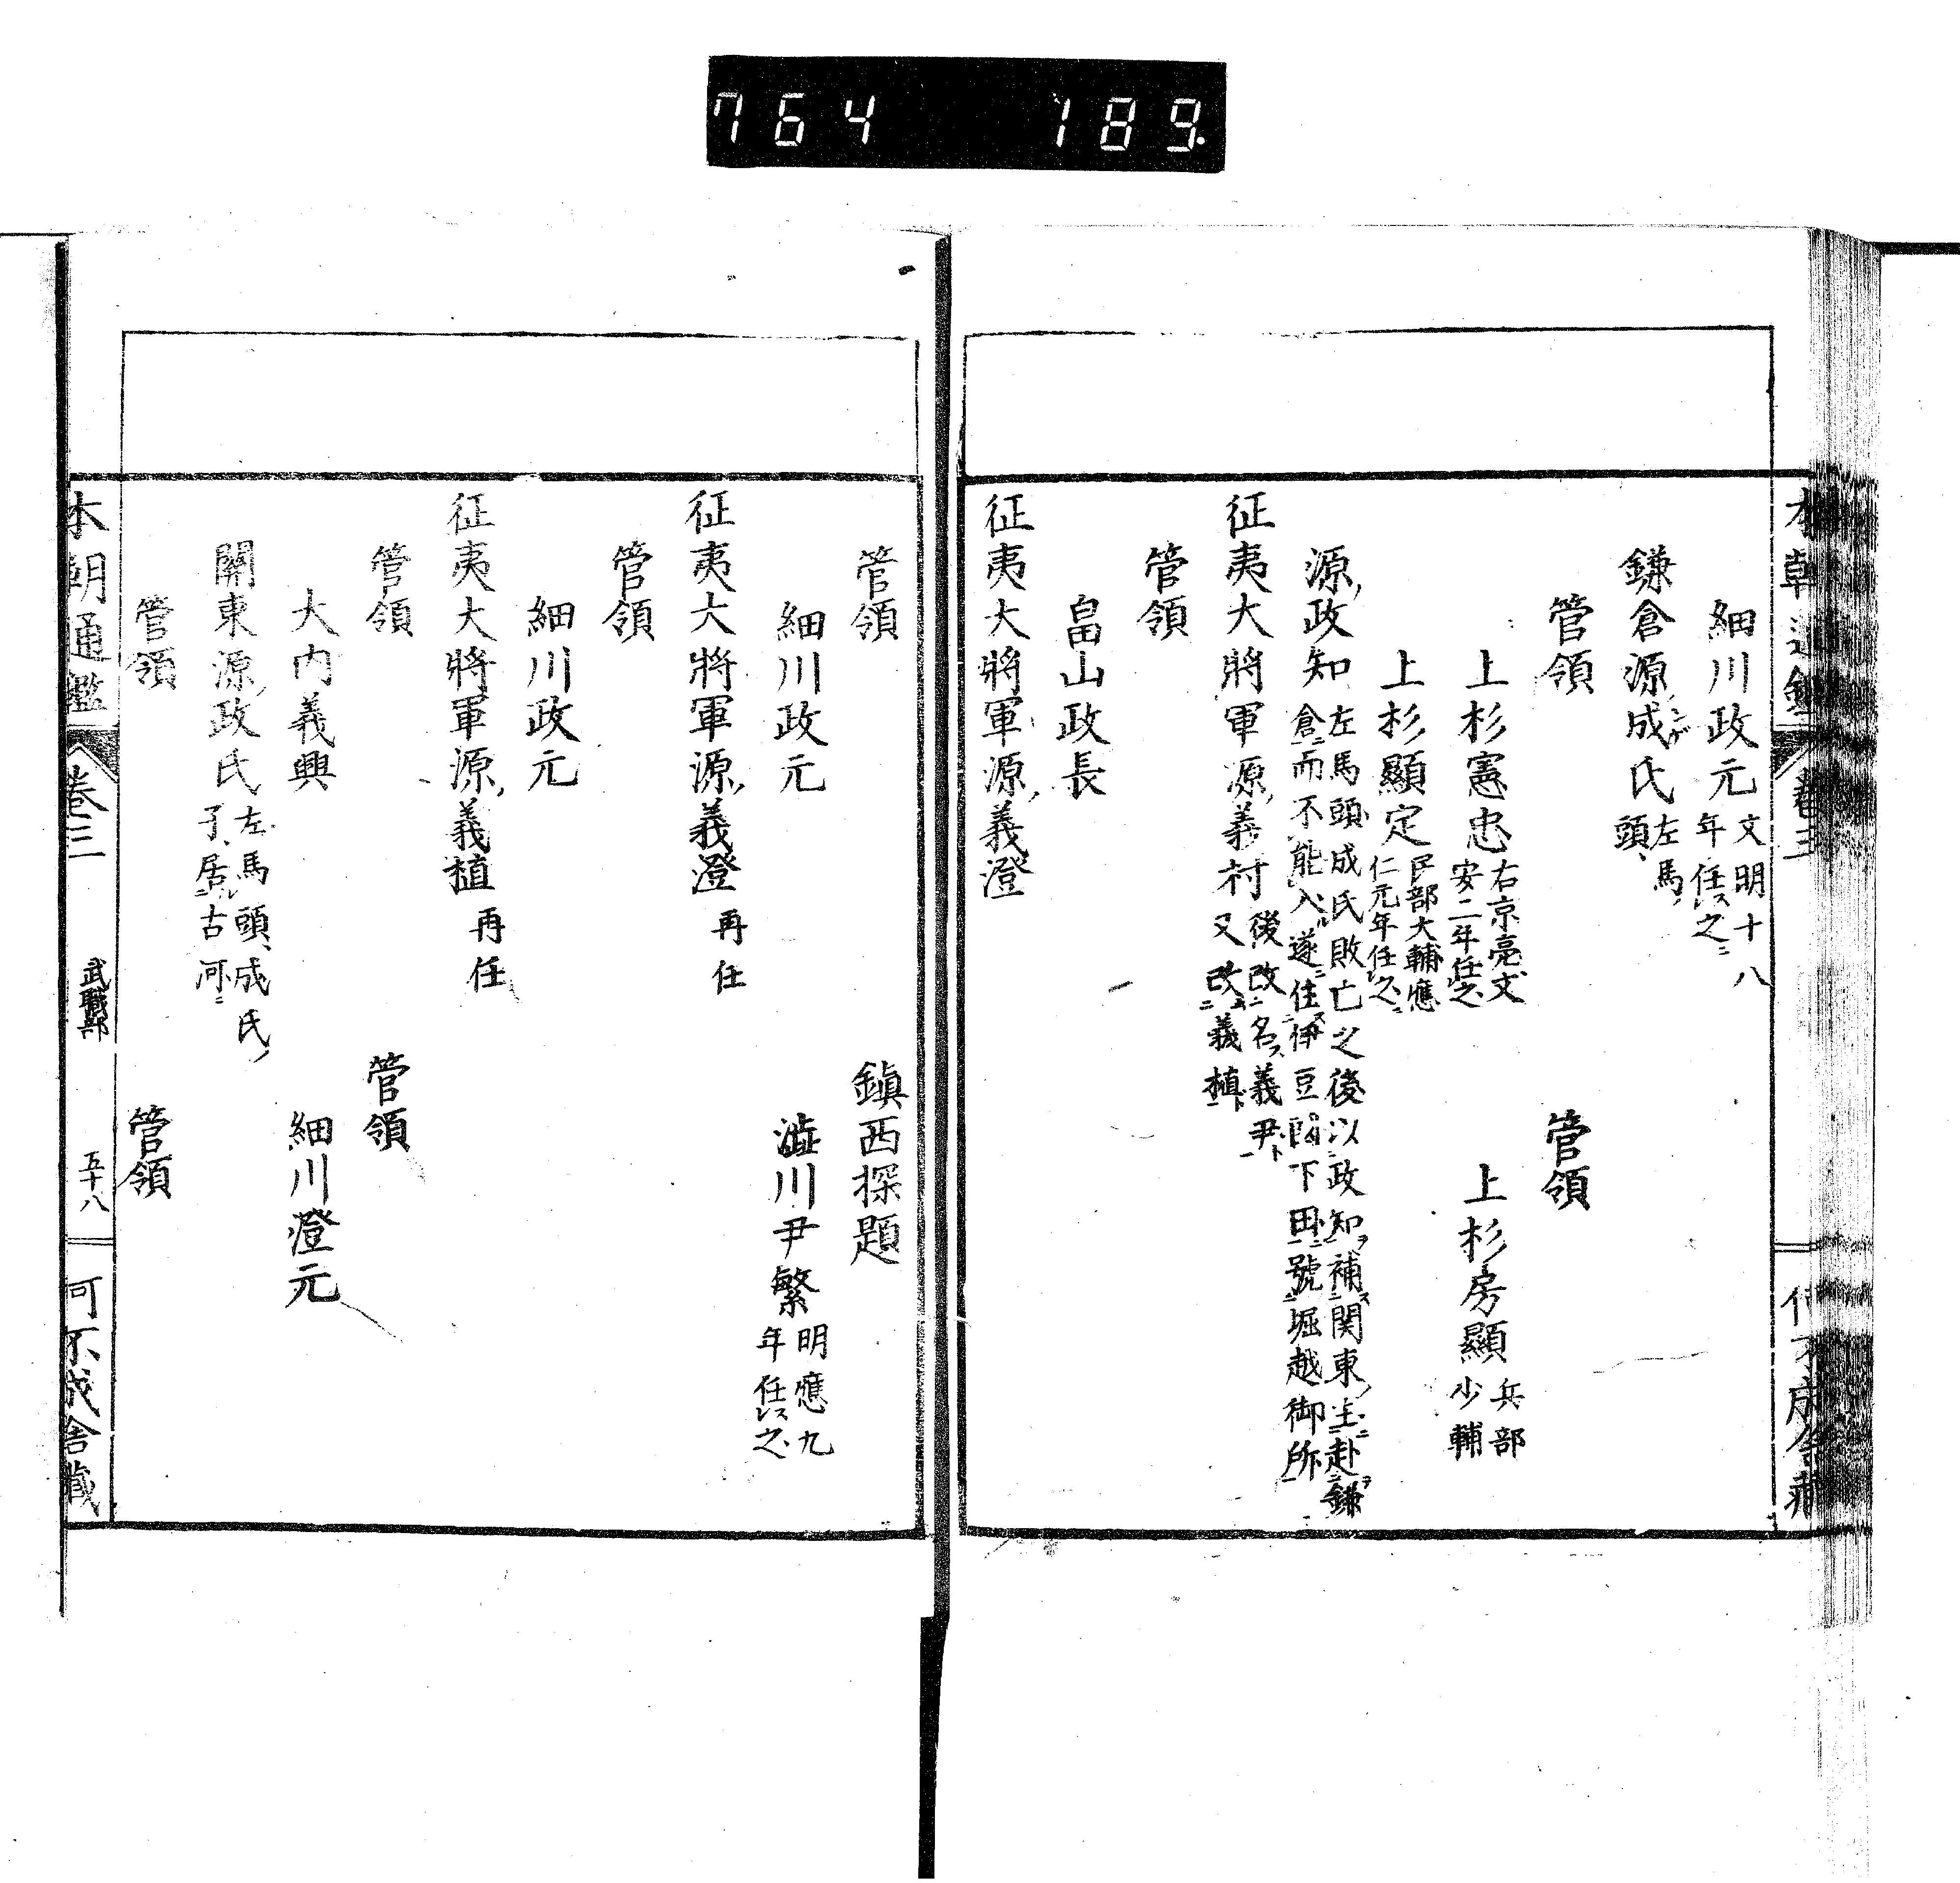 764 189
細川政元 文明十八
年任之
鎌倉源成氏 左馬
頭
管領 管領
上杉憲忠 右京亮文
安二年任之
上杉房顯 兵部
少輔
上杉顯定 民部大輔應
仁元年任之
源政知 左馬頭成氏敗亡之後以政知補関東主赴鎌
倉而不能入遂住伊豆国下田號堀越御所
征夷大將軍源義村 後改名義尹
又改義植
管領
畠山政長
征夷大將軍源義澄
管領 鎭西探題
細川政元 澁川尹繁 明應九
年任之
征夷大將軍源義澄 再任
管領
細川政元
征夷大將軍源義植 再任
管領 管領
大内義興 細川澄元
關東源政氏 左馬頭成氏
子居古河
管領 管領
本朝通鑑 卷三 武職部 五十八 可不成舎藏